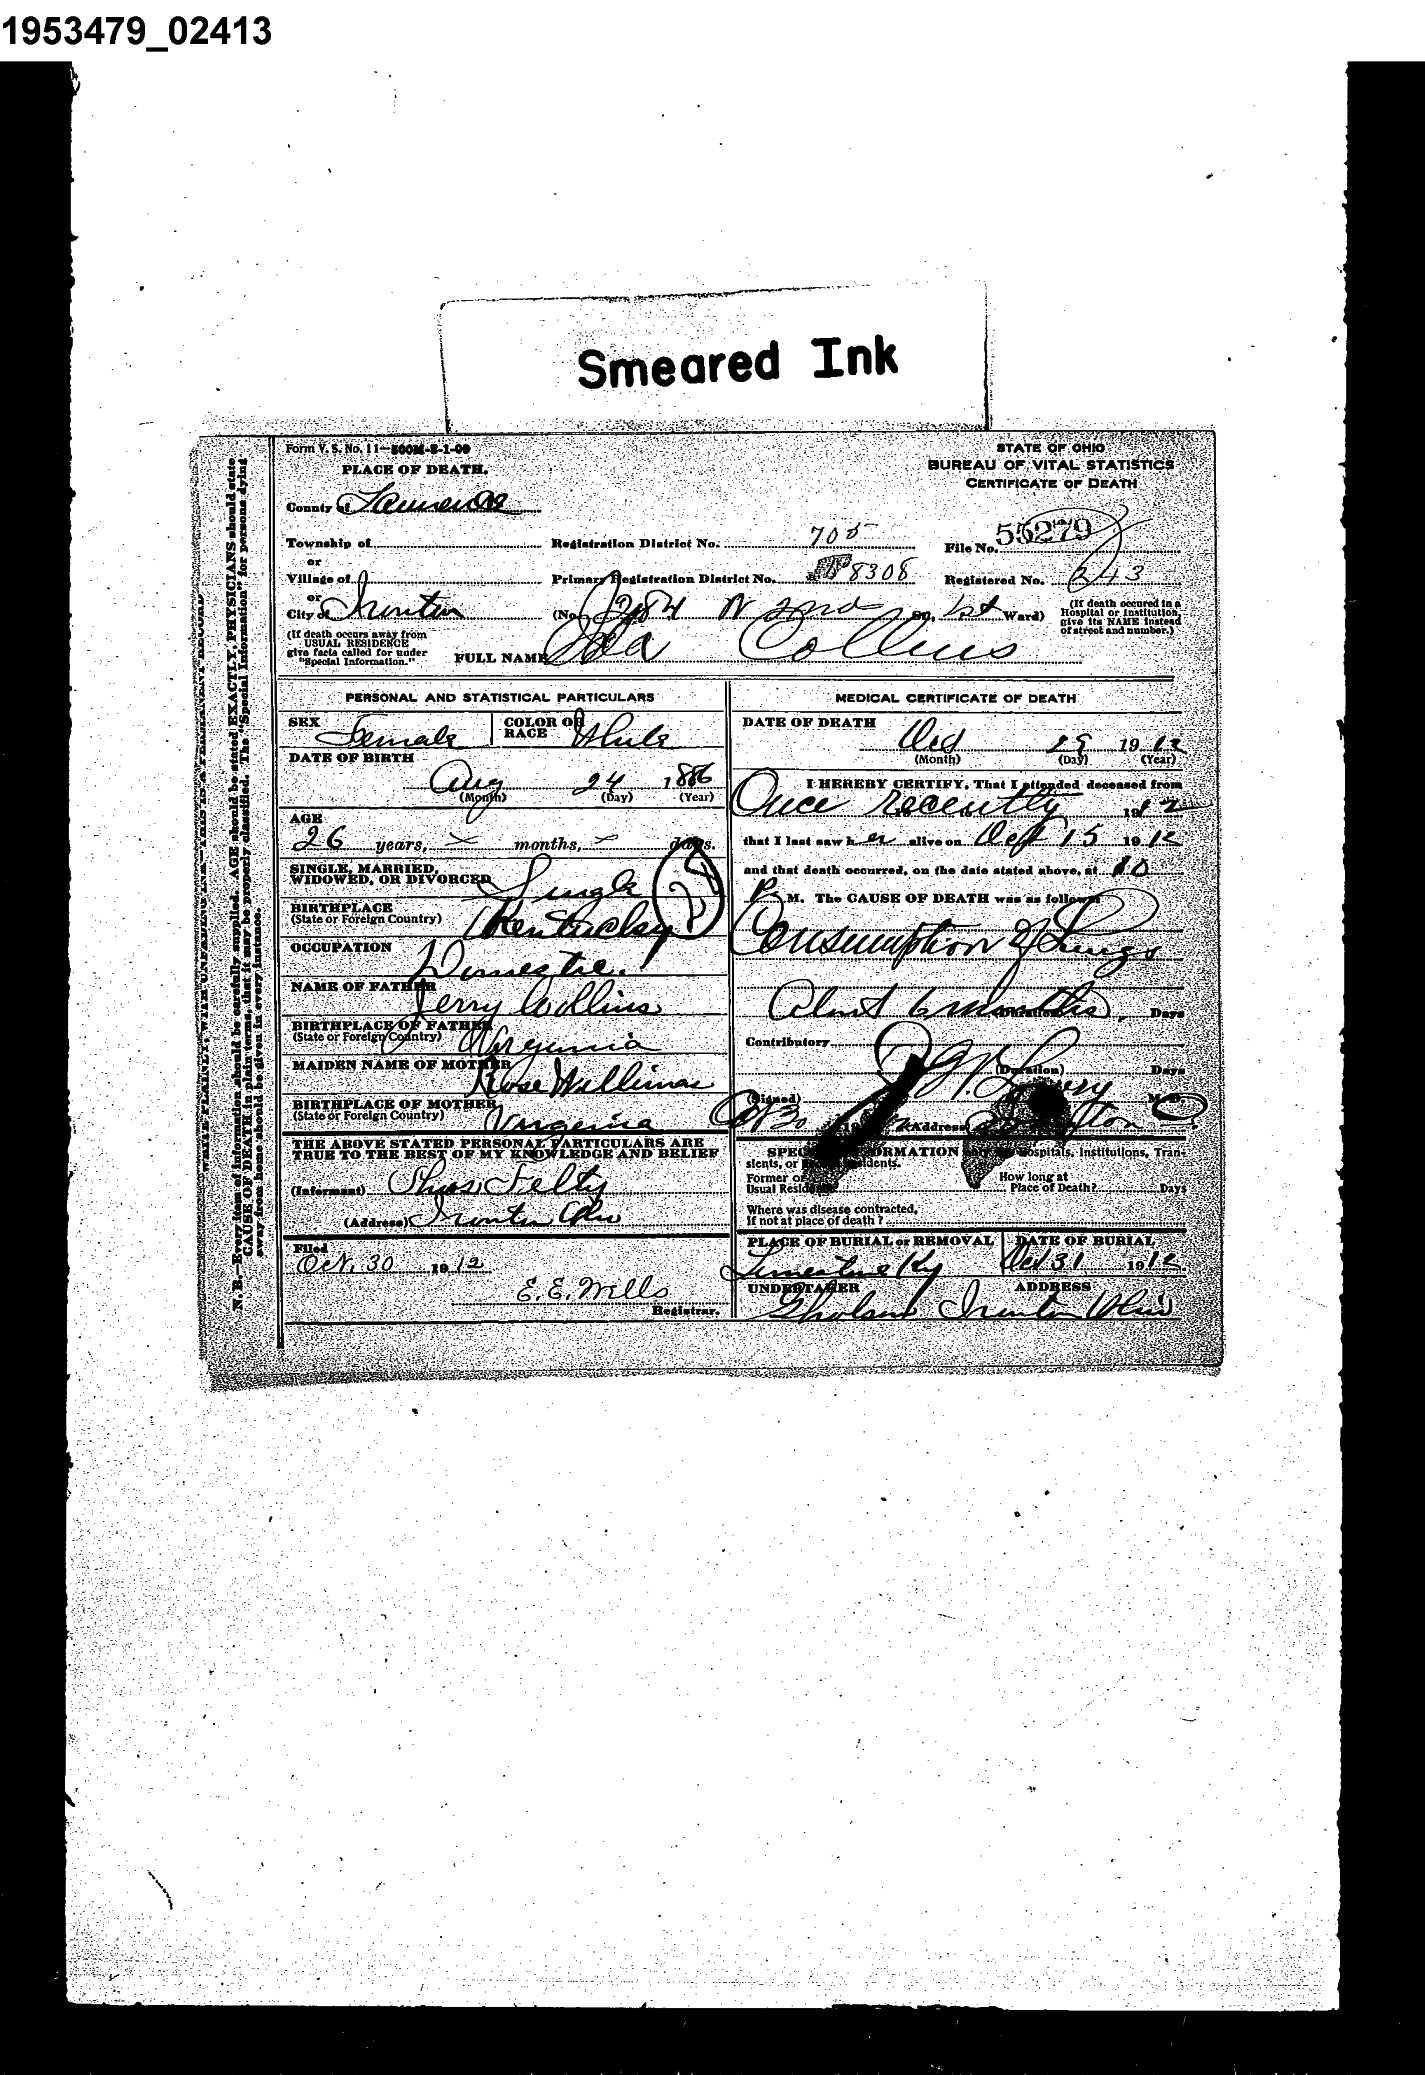 1953479_02413
Smeared Ink
Form V. S. No. 11—500M-8-1-09
STATE OF OHIO
PLACE OF DEATH.
BUREAU OF VITAL STATISTICS
CERTIFICATE OF DEATH
County of Lawrence
Township of
Registration District No. 705
File No. 55279
or
Village of
Primary Registration District No. 8308
Registered No. 243
or
City of Ironton
(No. 284 N 2nd St., 1st Ward)
(If death occured in a Hospital or Institution, give its NAME instead of street and number.)
(If death occurs away from USUAL RESIDENCE give facts called for under "Special Information.")
FULL NAME Ida Collins
PERSONAL AND STATISTICAL PARTICULARS
SEX Female
COLOR OR RACE White
DATE OF BIRTH
Aug 24 1886
(Month) (Day) (Year)
AGE
26 years, months, days.
SINGLE, MARRIED, WIDOWED, OR DIVORCED Single
BIRTHPLACE
(State or Foreign Country) Kentucky
OCCUPATION Domestic.
NAME OF FATHER Jerry Collins
BIRTHPLACE OF FATHER
(State or Foreign Country) Virginia
MAIDEN NAME OF MOTHER Rose Williams
BIRTHPLACE OF MOTHER
(State or Foreign Country) Virginia
THE ABOVE STATED PERSONAL PARTICULARS ARE
TRUE TO THE BEST OF MY KNOWLEDGE AND BELIEF
(Informant) Chas. Felty
(Address) Ironton Ohio
Filed
Oct. 30 1912
E. E. Wells
Registrar.
MEDICAL CERTIFICATE OF DEATH
DATE OF DEATH
Oct 29 1912
(Month) (Day) (Year)
I HEREBY CERTIFY, That I attended deceased from
Once recently 1912
that I last saw her alive on Oct 15 1912
and that death occurred, on the date stated above, at 10
P M. The CAUSE OF DEATH was as follows:
Consumption of Lungs
About 6 months
(Duration) Days
Contributory
(Duration) Days
(Signed) M. D.
Oct 30 (Address) Ironton O
SPECIAL INFORMATION only for Hospitals, Institutions, Tran-
sients, or Residents.
Former or
Usual Residence
How long at
Place of Death? Days
Where was disease contracted,
If not at place of death?
PLACE OF BURIAL or REMOVAL
Limestone Ky
DATE OF BURIAL
Oct 31 1912
UNDERTAKER
Gholson
ADDRESS
Ironton Ohio
N. B.—Every item of information should be carefully supplied. AGE should be stated EXACTLY. PHYSICIANS should state
CAUSE OF DEATH in plain terms, that it may be properly classified. The "Special Information" for persons dying
away from home should be given in every instance.